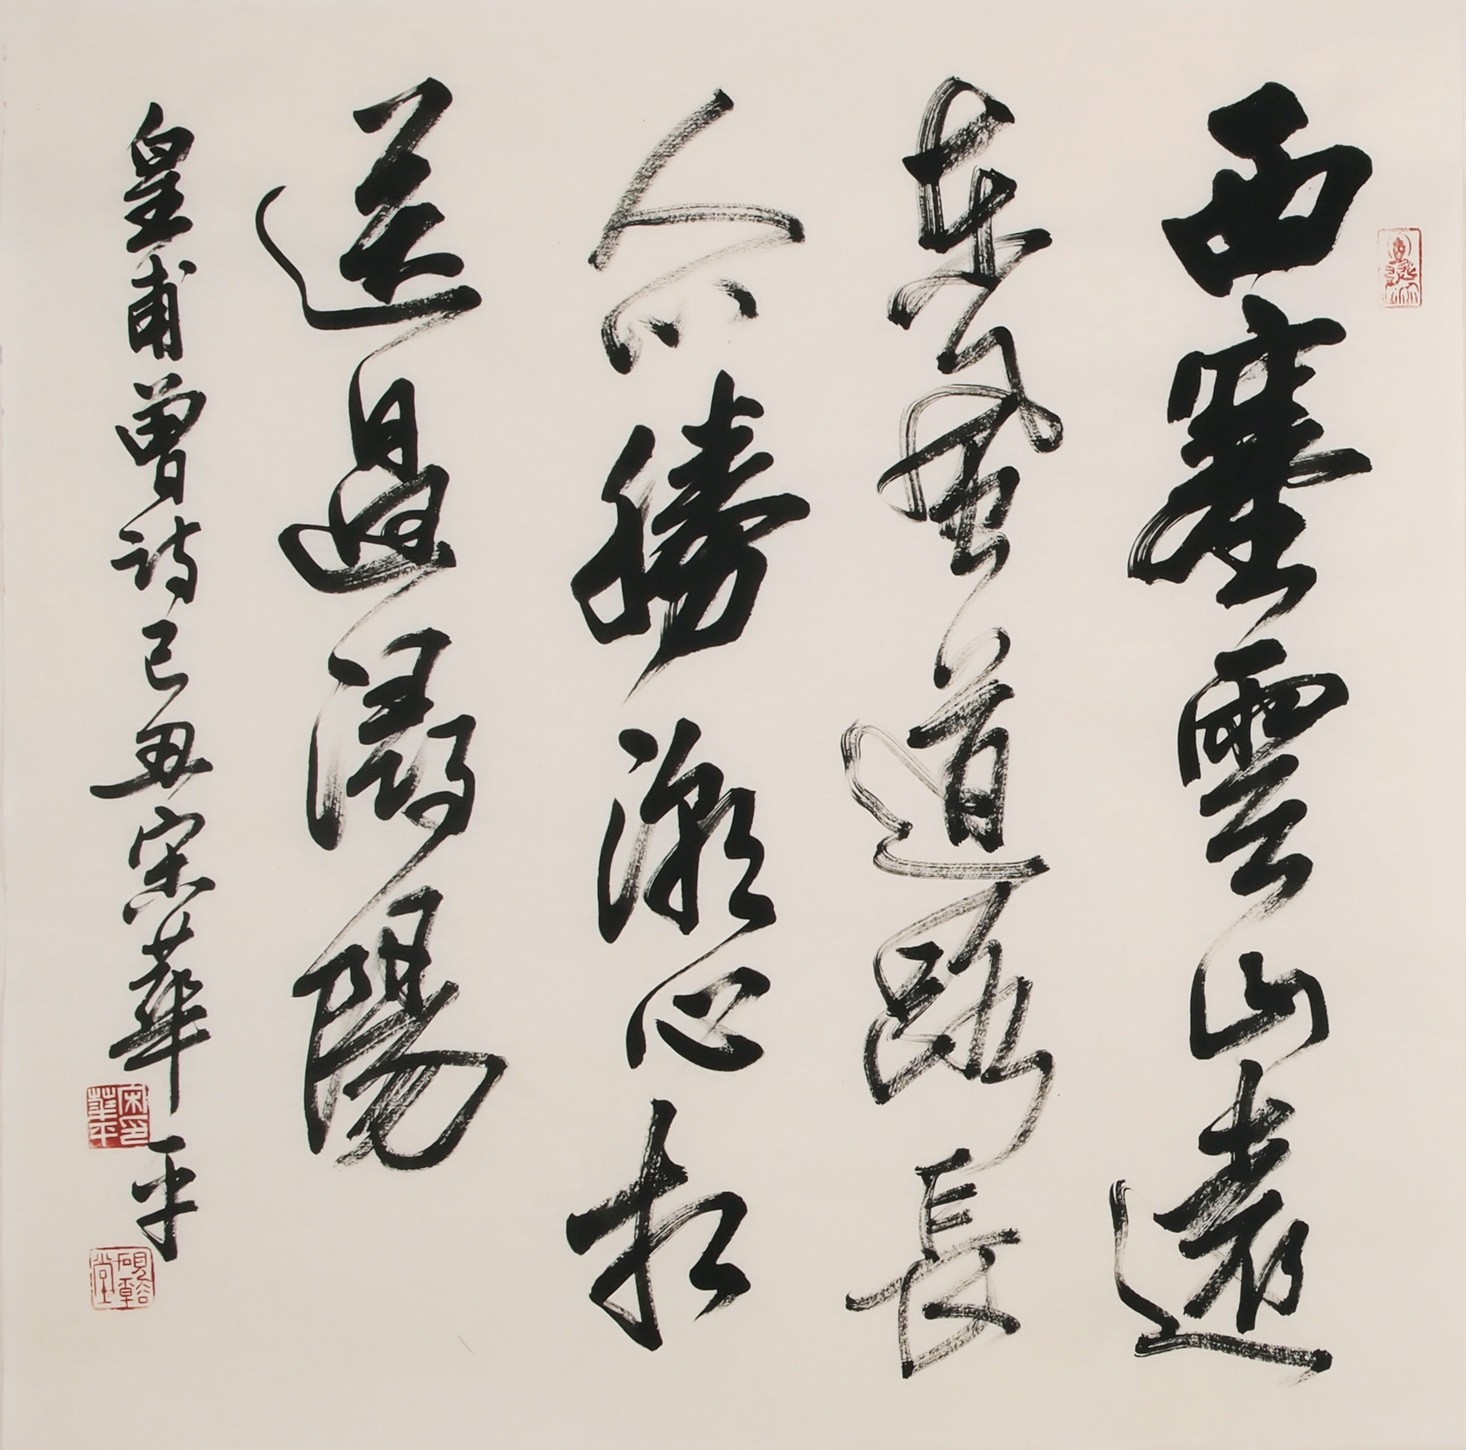 西塞雲山遠
東風道路長
人心勝潮水相
送過潯陽
皇甫曾詩己丑宋華平
宋華平印